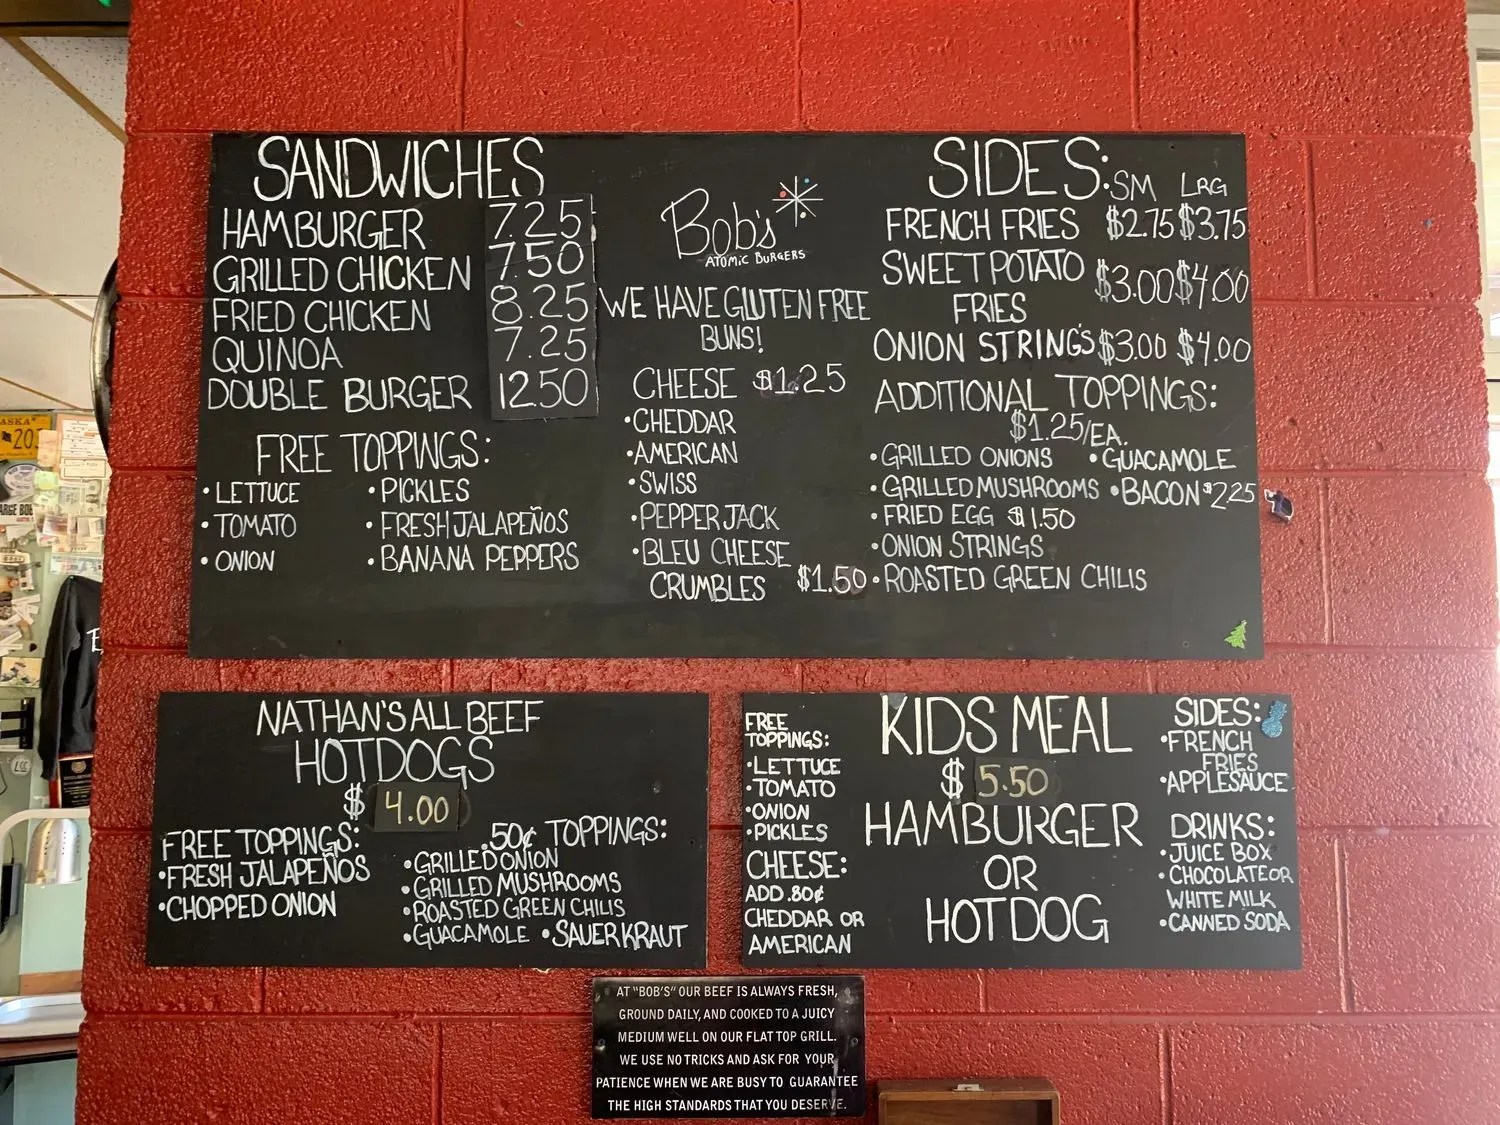 SANDWICHES
HAMBURGER 7.25
GRILLED CHICKEN 7.50
FRIED CHICKEN 8.25
QUINOA 7.25
DOUBLE BURGER 12.50
FREE TOPPINGS:
• LETTUCE
• TOMATO
• ONION
• PICKLES
• FRESH JALAPEÑOS
• BANANA PEPPERS
Bob's
ATOMIC BURGERS
WE HAVE GLUTEN FREE
BUNS!
CHEESE $1.25
• CHEDDAR
• AMERICAN
• SWISS
• PEPPER JACK
• BLEU CHEESE
CRUMBLES $1.50
SIDES: SM LRG
FRENCH FRIES $2.75 $3.75
SWEET POTATO
FRIES $3.00 $4.00
ONION STRINGS $3.00 $4.00
ADDITIONAL TOPPINGS:
$1.25/EA.
• GRILLED ONIONS • GUACAMOLE
• GRILLED MUSHROOMS • BACON $2.25
• FRIED EGG $1.50
• ONION STRINGS
• ROASTED GREEN CHILIS
NATHAN'S ALL BEEF
HOTDOGS
$ 4.00
FREE TOPPINGS:
• FRESH JALAPEÑOS
• CHOPPED ONION
.50¢ TOPPINGS:
• GRILLED ONION
• GRILLED MUSHROOMS
• ROASTED GREEN CHILIS
• GUACAMOLE • SAUERKRAUT
FREE
TOPPINGS:
• LETTUCE
• TOMATO
• ONION
• PICKLES
CHEESE:
ADD .80¢
CHEDDAR OR
AMERICAN
KIDS MEAL
$ 5.50
HAMBURGER
OR
HOTDOG
SIDES:
• FRENCH
FRIES
• APPLESAUCE
DRINKS:
• JUICE BOX
• CHOCOLATE OR
WHITE MILK
• CANNED SODA
AT "BOB'S" OUR BEEF IS ALWAYS FRESH,
GROUND DAILY, AND COOKED TO A JUICY
MEDIUM WELL ON OUR FLAT TOP GRILL.
WE USE NO TRICKS AND ASK FOR YOUR
PATIENCE WHEN WE ARE BUSY TO GUARANTEE
THE HIGH STANDARDS THAT YOU DESERVE.